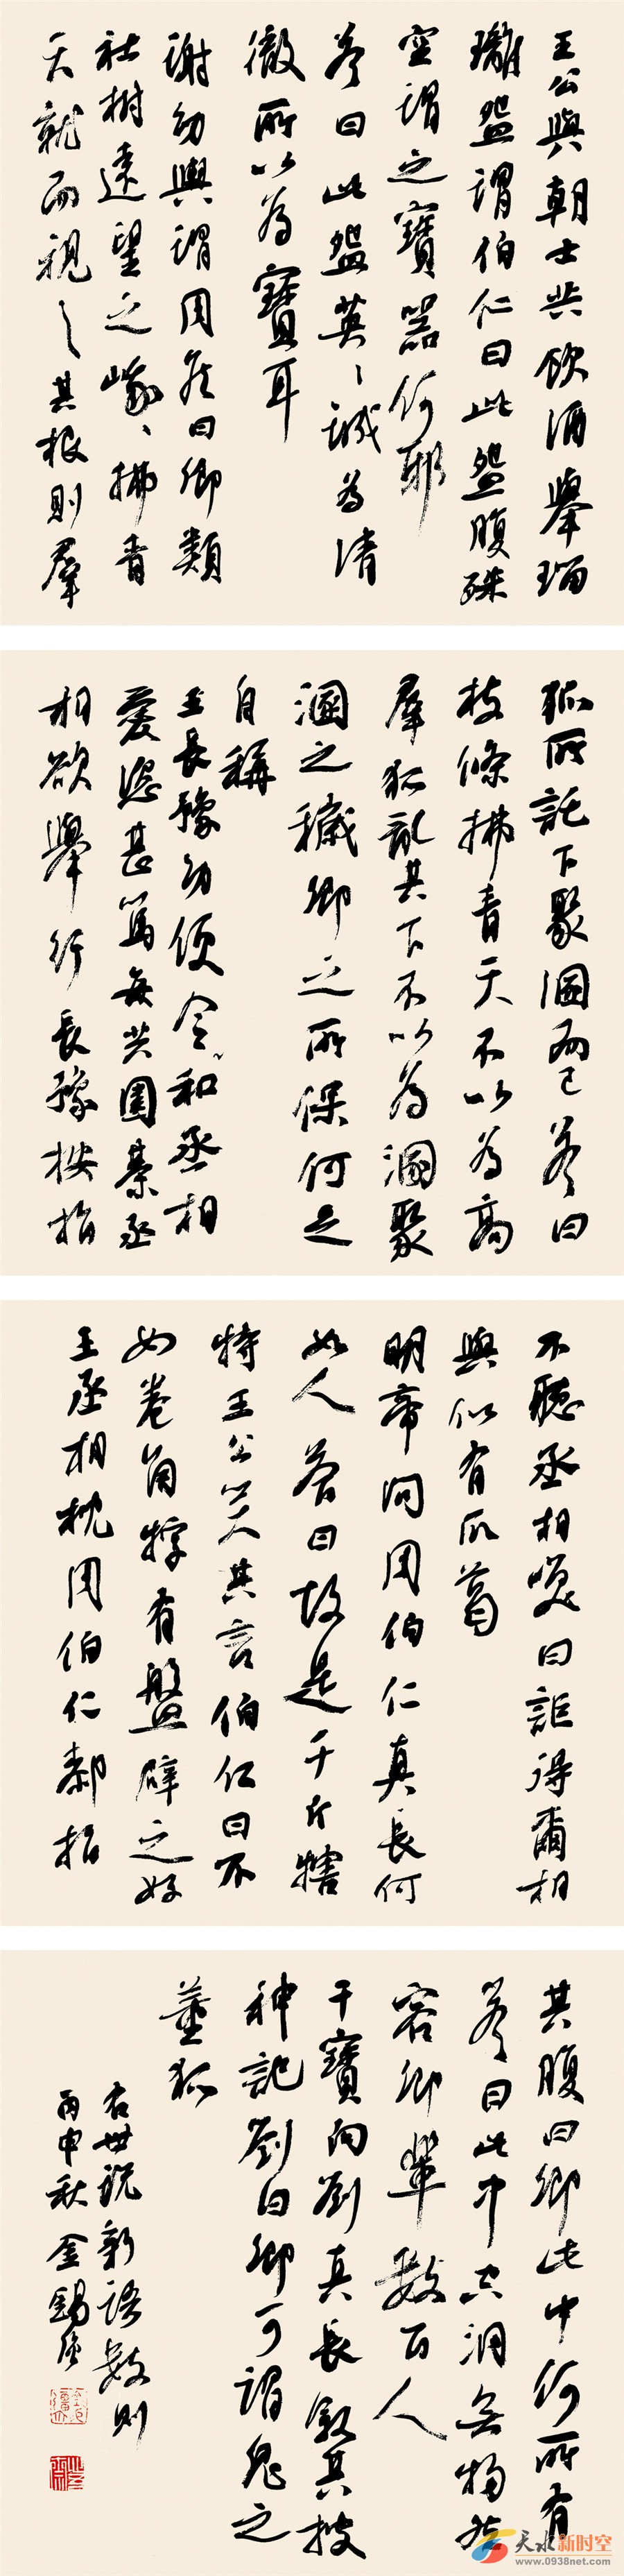 王公與朝士共飲酒舉瑠
璃盌謂伯仁曰此盌腹殊
空謂之寶器何邪
答曰此盌英〻誠為清
徹所以為寶耳
謝幼輿謂周侯曰卿類
社樹遠望之峨〻拂青
天就而視之其根則羣
狐所託下聚溷而已答曰
枝條拂青天不以為高
羣狐亂其下不以為溷聚
溷之穢卿之所保何足
自稱
王長豫幼便令和丞相
愛恣甚篤每共圍棊丞
相欲舉行長豫按指
不聽丞相咲曰詎得爾相
與似有瓜葛
明帝問周伯仁真長何
如人答曰故是千斤犗
特王公笑其言伯仁曰不
如卷角牸有盤辟之好
王丞相枕周伯仁厀指
其腹曰卿此中何所有
答曰此中空洞無物然
容卿輩數百人
干寶向劉真長敘其搜
神記劉曰卿可謂鬼之
董狐
右世說新語數則
丙申秋金錫
天水新时空
www.0938net.com